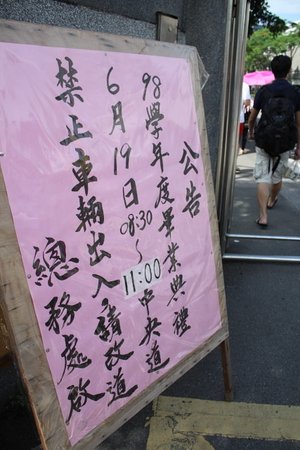 公告
98學年度畢業典禮
6月19日08:30～11:00中央道
禁止車輛出入請改道
總務處啟